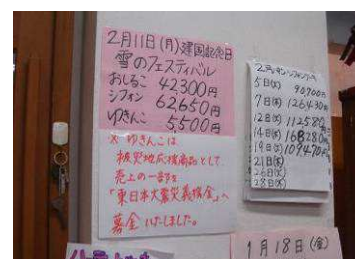 2月11日(月)建国記念日
雪のフェスティバル
おしるこ 42,300円
シフォン 62,650円
ゆきんこ 5,500円
※ゆきんこは
被災地応援商品として
売上の一部を
「東日本大震災義援金」へ
募金いたしました。
5日(火) 90,900円
7日(木) 126,430円
12日(火) 112,580円
14日(木) 168,280円
19日(火) 109,470円
21日(木)
26日(火)
28日(木)
1月18日(金)